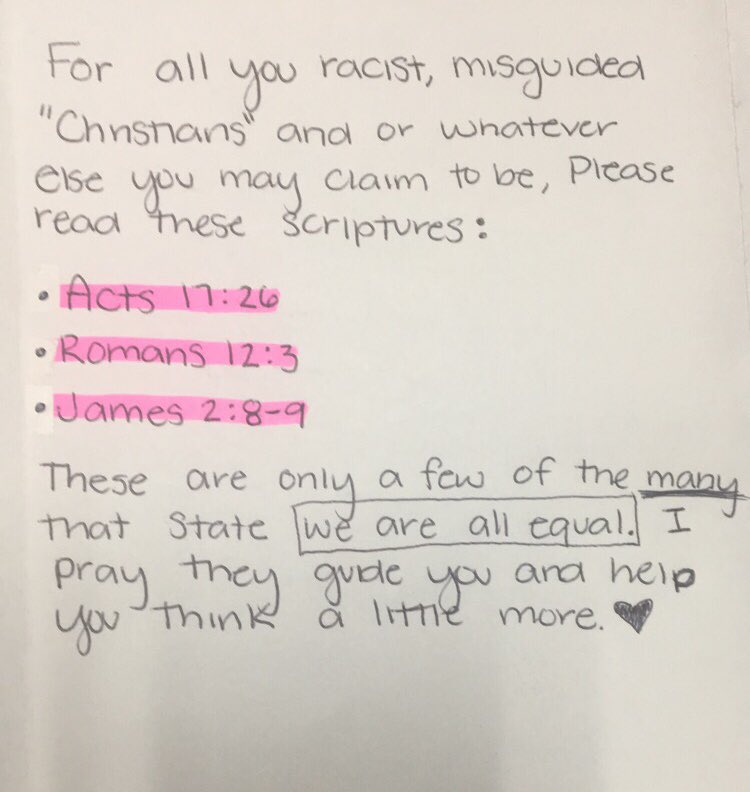 For all you racist, misguided
"Christians" and or whatever
else you may claim to be, Please
read these scriptures:
• Acts 17:26
• Romans 12:3
• James 2:8-9
These are only a few of the many
that State we are all equal. I
pray they guide you and help
you think a little more. ♥